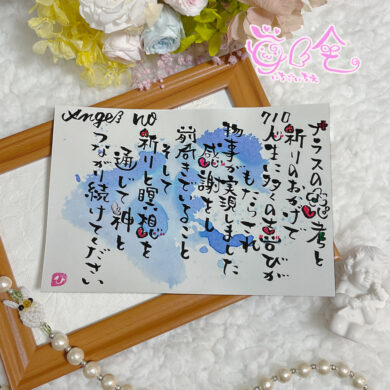 Angel no
710
プラスの思考と
祈りのおかげで
人生に多くの喜びが
もたらされ
物事が実現しました
感謝をし
前向きでいること
そして
祈りと瞑想を
通して神と
つながり続けてください
ひ